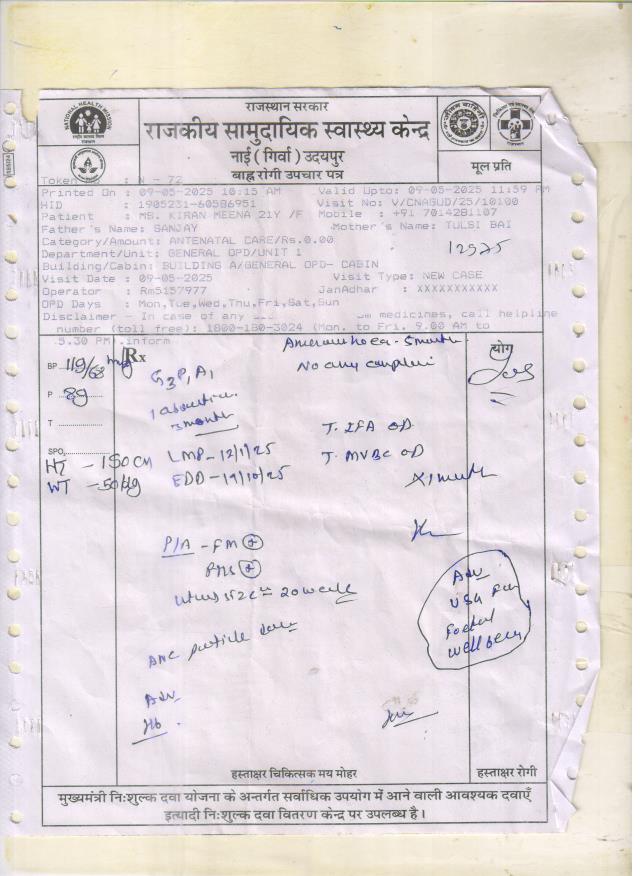 राजस्थान सरकार
राजकीय सामुदायिक स्वास्थ्य केन्द्र
नाई (गिर्वा) उदयपुर
बाह्य रोगी उपचार पत्र
मूल प्रति
NATIONAL HEALTH MISSION
Token : N - 72
Printed On : 09-05-2025 10:15 AM Valid Upto: 09-05-2025 11:59 PM
HID : 1905231-60586951 Visit No: V/CNAGUD/25/10100
Patient : MS. KIRAN MEENA 21Y /F Mobile : +91 7014281107
Father's Name: SANJAY Mother's Name: TULSI BAI
Category/Amount: ANTENATAL CARE/Rs.0.00
12975
Department/Unit: GENERAL OPD/UNIT 1
Building/Cabin: BUILDING A/GENERAL OPD- CABIN
Visit Date : 09-05-2025 Visit Type: NEW CASE
Operator : Rm5157977 JanAdhar : XXXXXXXXXXX
OPD Days : Mon,Tue,Wed,Thu,Fri,Sat,Sun
Disclaimer - In case of any medicines, call helpline
number (toll free): 1800-180-3024 (Mon. to Fri. 9.00 AM to
5.30 PM).inform
Rx
BP 119/68
No any
G3P1A1
P 89
3 month
T
T. IFA OD
SPO2
HT - 150 CM LMP - 12/1/25 T. MVBC OD
WT - 50 kg EDD - 19/10/25 X1 month
P/A - FM +
FHS +
20 week
Adv
USG for
Foetal
well being
ANC
Adv
Hb
हस्ताक्षर चिकित्सक मय मोहर
हस्ताक्षर रोगी
मुख्यमंत्री निःशुल्क दवा योजना के अन्तर्गत सर्वाधिक उपयोग में आने वाली आवश्यक दवाएँ
इत्यादी निःशुल्क दवा वितरण केन्द्र पर उपलब्ध है।